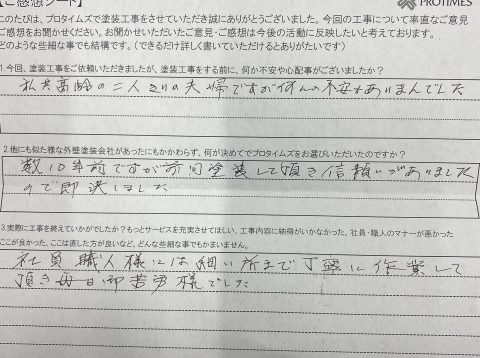 【ご感想シート】
PROTIMES
このたびは、プロタイムズで塗装工事をさせていただき誠にありがとうございました。今回の工事について率直なご意見
ご感想をお聞かせください。お聞かせいただいたご意見・ご感想は今後の活動に反映したいと考えております。
どのような些細な事でも結構です。（できるだけ詳しく書いていただけるとありがたいです）
1.今回、塗装工事をご依頼いただきましたが、塗装工事をする前に、何か不安や心配事がございましたか？
私共高齢の二人きりの夫婦ですが何んの不安もありませんでした
2.他にも似た様な外壁塗装会社があったにもかかわらず、何が決めてでプロタイムズをお選びいただいたのですか？
数10年前ですが前回塗装して頂き信頼いがありました
ので即決しました
3.実際に工事を終えていかがでしたか？もっとサービスを充実させてほしい、工事内容に納得がいかなかった、社員・職人のマナーが悪かった
ここが良かった、ここは直した方が良いなど、どんな些細な事でもかまいません。
社員 職人様には細い所まで丁寧に作業して
頂き毎日御苦労様でした